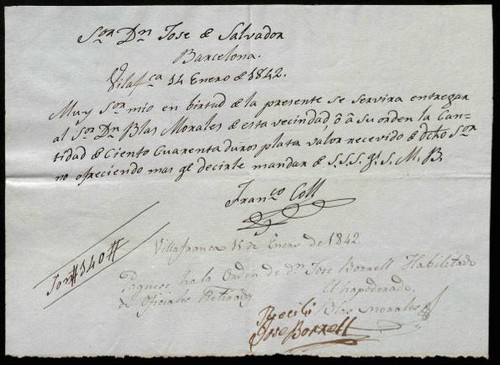 Sor Dn Jose de Salvador
Barcelona.
Vilafca 14 Enero de 1842.
Muy Sor mio en birtud de la presente se servira entregar
al Sor Dn Blas Morales de esta vecindad ó à su orden la Can-
tidad de Ciento Cuarenta duros plata valor recevido de dcho Sor
no ofreciendo mas qe decirle mandar de S.S.S. Q. S. M. B.
Franco Coll
Son # 140 #
Villafranca 15 de Enero de 1842
Paguese à la Orden de Dn Jose Borrell Habilitado
de Oficiales Retirados
El Apoderado
Blas Morales
Recibi
Jose Borrell